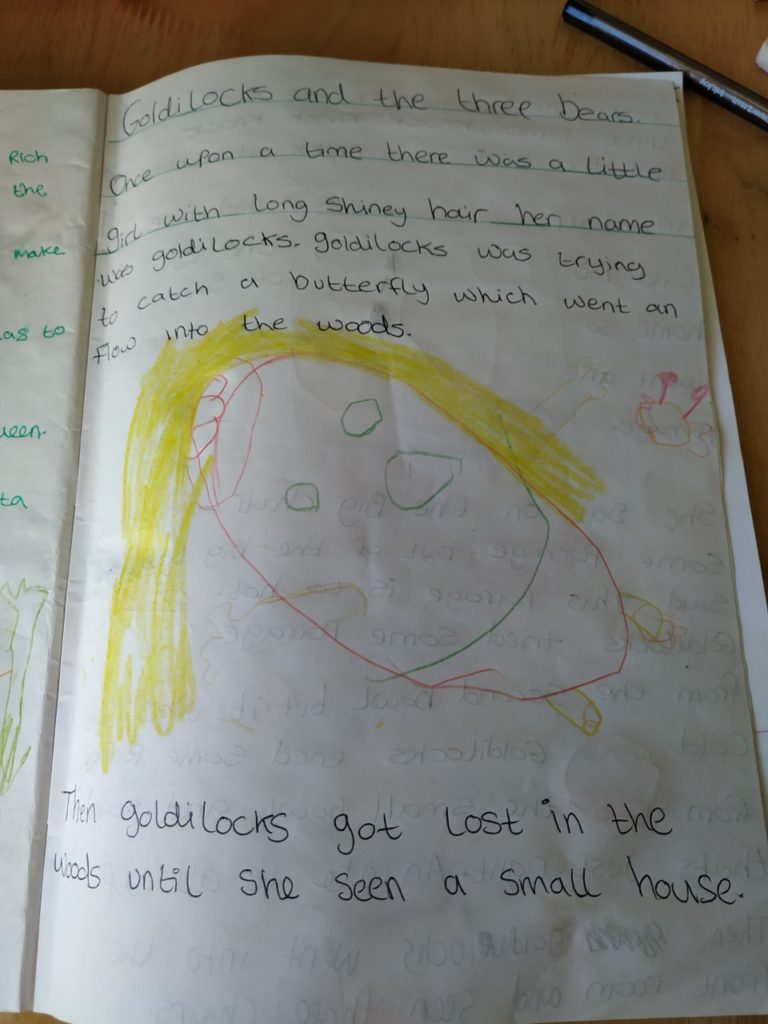 Rich
the
make
as to
ueen.
ta
Goldilocks and the three bears.
Once upon a time there was a little
girl with long shiney hair her name
was goldilocks. goldilocks was trying
to catch a butterfly which went an
flow into the woods.
Then goldilocks got lost in the
woods until she seen a small house.